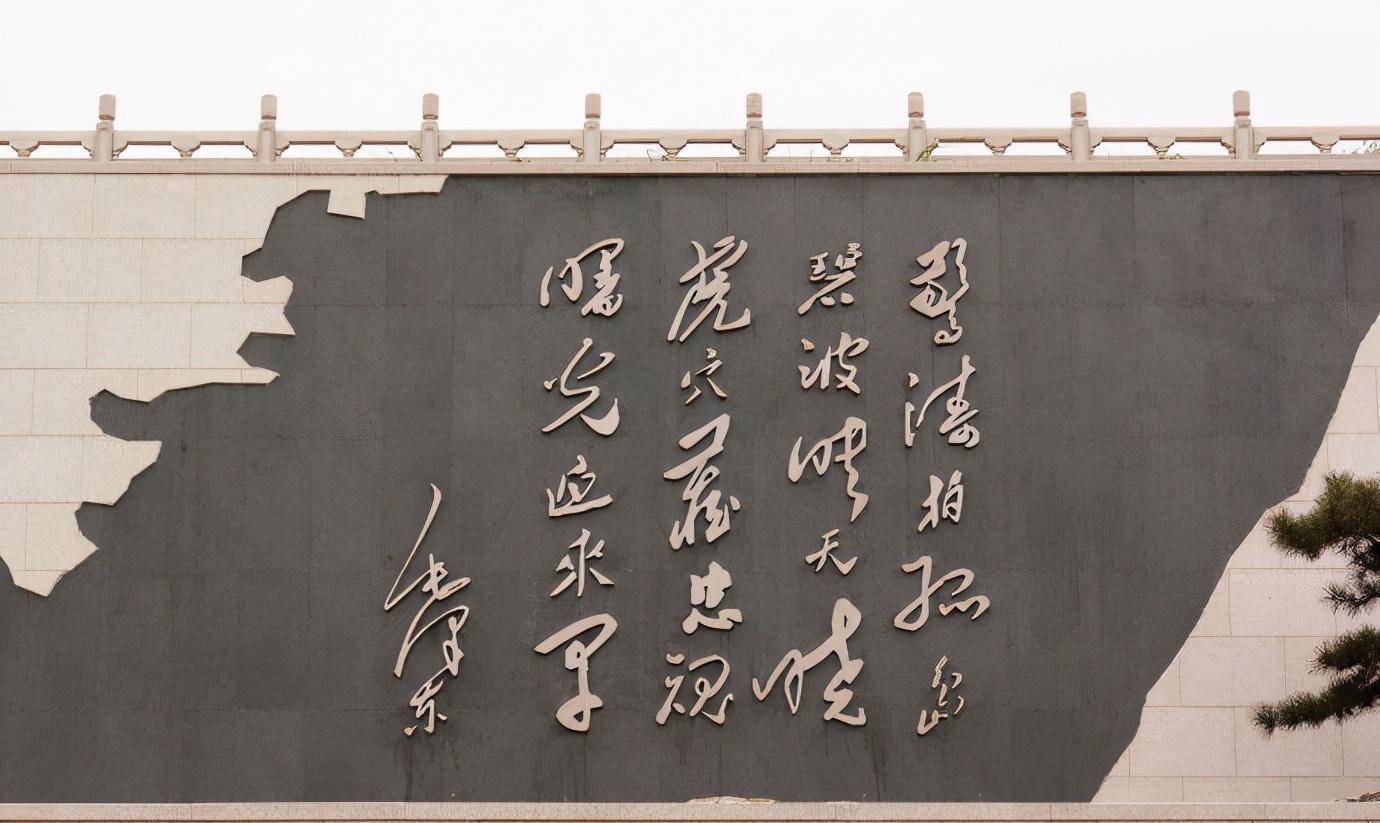 惊涛拍孤岛
碧波映天晓
虎穴藏忠魂
曙光迎来早
毛泽东